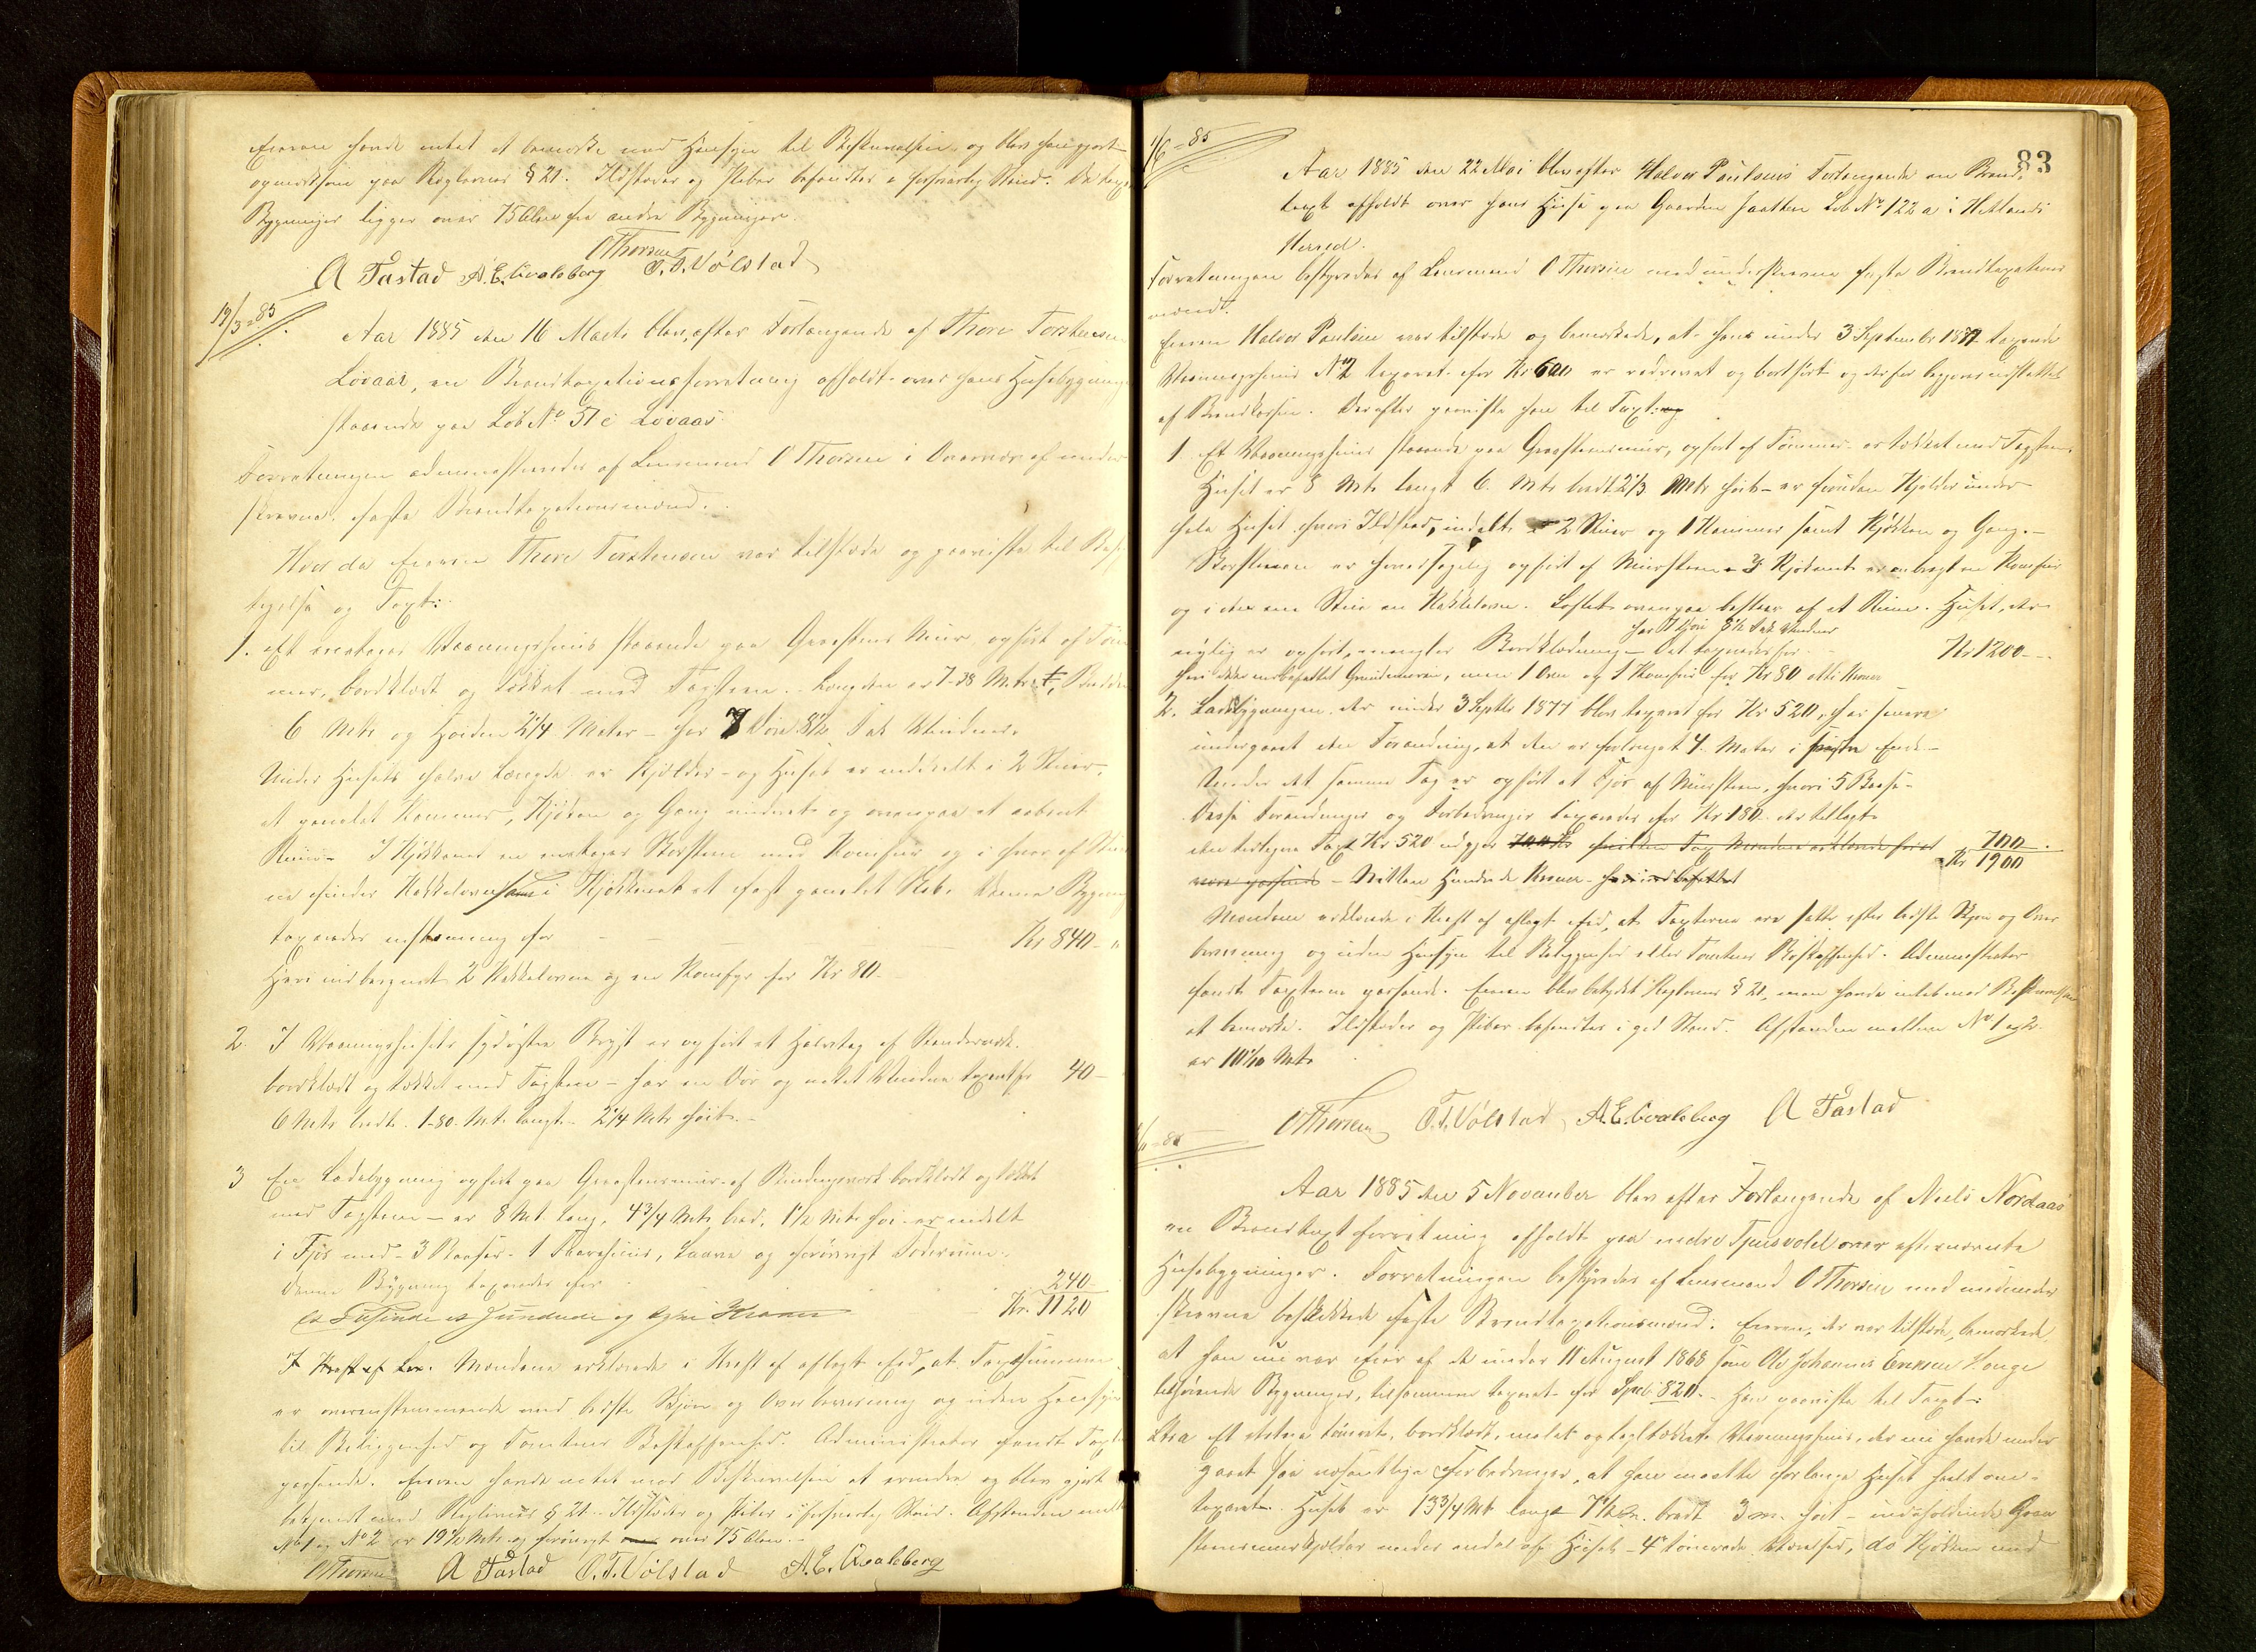 Eieren havde intet at bemærke med Hensyn til Beskrivelsen og blev han gjort
opmerksom paa Reglernes § 21. Ildsteder og Piber befandtes i forsvarlig Stand. De
Bygninger ligger over 75 Alen fra andre Bygninger.
OThorsen
A Tastad A. E. Qvaleberg O. T. Vølstad
19/3-85
Aar 1885 den 16 Marts blev efter Forlangende af Thore Torstensen
Lovaas, en Brandtaxationsforretning afholdt over hans Husebygninger
staaende paa Løb No 57 c Lovaas.
Forretningen administreredes af Lensmand O Thorsen i Overvær af under-
skrevne faste Brandtaxationsmænd.
Hvor da Eieren Thore Torstensen var tilstede og paaviste til
tigelse og Taxt:
1. Et Vaaningshuus staaende paa Graastens Muur opført af Tøm-
mer, bordklædt og tækket med Tagsteen. Længden er 7-28 Meter, Bredden
6 Mtr og Høiden 2 1/4 Meter - har 7 Døre 8 1/2 Fak Vinduer.
Under Husets halve Længde er Kjelder - og Huset er inddeelt i 2 Stuer,
et panelet Kammer, Kjøken og Gang nederst og ovenpaa et aabent
Rum - I Kjøkkenet en Skorsteen med Komfur og i hver af Stuer-
ne findes Kakkelovn samt i Kjøkkenet et fast panelet Skab. Denne Bygning
taxeredes for Kr 840 - "
Heri indberegnet 2 Kakkelovne og en Komfyr for Kr 80.
2. I Vaaningshusets sydøstre Bryst er opført et Halvtag af Bindværk
bordklædt og tækket med Tagsteen - har en Dør og intet Vindue taxeret for 40 -
6 Mtr bredt. 1-80. Mtr langt - 2 1/4 Mtr høit. -
3 En Ladebygning opført paa Graasteensmur af Bindingsværk bordklædt og tækket
med Tagsteen - er 8 Mtr lang, 4 3/4 Mtr bred, 1 1/2 Mtr høi er indelt
i Fjøs med - 3 Baaser - 1 Faarehuus, Laave og forøvrigt Foderrum.
Denne Bygning taxeredes for 240 -
Et Tusinde et Hundrede og tyve Kroner Kr. 1120
Mændene erklærede i Kraft af aflagt Eed, at Taxtsummen
er overensstemmende med bedste Skjøn og Overbeviisning og uden Hensyn
til Beliggenhed og Tomtens Beskaffenhed. Administrator fandt Taxten
passende. Eieren havde intet mod Beskrivelsen at erindre og blev gjort
bekjendt med Reglernes § 21. Ildsteder og Piber i forsvarlig Stand. Afstanden mellem
No 1 og No 2 er 19 1/2 Mtr. og forøvrigt over 75 Alen. -
OThorsen A Tastad O. T. Vølstad A. E. Qvaleberg
1/6-85
83
Aar 1885 den 22 Mai blev efter Halvor Paulsens Forlangende en Brand-
taxt afholdt over hans Huse paa Gaarden Løb No 122 a i Hetlands
Herred.
Forretningen bestyredes af Lensmand O Thorsen med underskrevne faste Brandtaxations
mænd.
Eieren Halvor Paulsen var tilstede og bemærkede, at hans under 3 September 1877 taxerede
Vaaningshuus No 2 taxeret for Kr 600 er nedrevet og bortført og derfor begjæres udslettet
af Brandkassen. Derefter paaviste han til Taxt:
1. Et Vaaningshuus staaende paa Graasteensmuur, opført af Tømmer er tækket med Tagsteen
Huset er 8 Mtr langt 6. Mtr bredt 2 1/3 Mtr høit - er foruden Kjelder under
hele Huset, hvori Ildsted, indelt i 2 Stuer og 1 Kammer samt Kjøkken og Gang. -
Skorstenen er forsvarlig opført af Muursteen. I Kjøkkenet er anbragt en Komfur
og i den ene Stue en Kakkelovn. Loftet ovenpaa bestaar af et Rum. Huset, der
har 7 Døre 8 1/2 Fak Vinduer
nylig er opført, mangler Bordklædning - Det taxeredes for Kr 1200 -
heri ikke indbefattet Grundmuren, men 1 Ovn og 1 Komfur for Kr 80 otti Kroner
2. Ladebygningen der under 3 Septbr 1877 blev taxeret for Kr 520, har senere
undergaaet den Forandring, at den er forlænget 4. Meter i Ende -
Under det samme Tag er opført et Fjøs af Muursteen, hvori 5 Baase -
Disse Forandringer og Forbedringer taxeredes for Kr 180. der tillagt
den tidligere Taxt Kr 520 udgjør 700 Kr hvilken Taxt Mændene erklærede for at 700.
være passende - Nitten Hundrede Kroner - heri indbefattet Kr 1900
Mændene erklærede i Kraft af aflagt Eed, at Taxterne ere satte efter bedste Skjøn og Over
beviisning og uden Hensyn til Beliggenhed eller Tomtens Beskaffenhed. Administrator
fandt Taxterne passende. Eieren blev betydet Reglernes § 21, men havde intet mod Beskrivelsen
at bemærke. Ildsteder og Piber befandtes i god Stand. Afstanden mellem No 1 og 2.
er 10 1/10 Mtr
OThorsen O. T. Vølstad A. E. Qvaleberg A Tastad
Aar 1885 den 5 November blev efter Forlangende af Niels Nordaas
en Brandtaxtforretning afholdt paa indre over efternævnte
Husebygninger. Forretningen bestyredes af Lensmand O Thorsen med medunder
skrevne beskikkede faste Brandtaxationsmænd. Eieren, der var tilstede, bemærkede
at han nu var Eier af de under 11 August 1868 som Johannes Eriksen Hauge
tilhørende Bygninger, tilsammen taxeret for Spd: 820. - Han paaviste til Taxt:
Litra a Et ældre tømret, bordklædt, malet og tegltækket Vaaningshuus, der nu havde under
gaaet saa væsentlige Forbedringer, at han maatte forlange Huset heelt om-
taxeret. Huset er 13 3/4 Mtr langt 7 1/2 m. bredt 3 m. høit - indeholdende Graa
steensmurkjelder under endel af Huset - 4 tømrede Værelser, do Kjøkken med